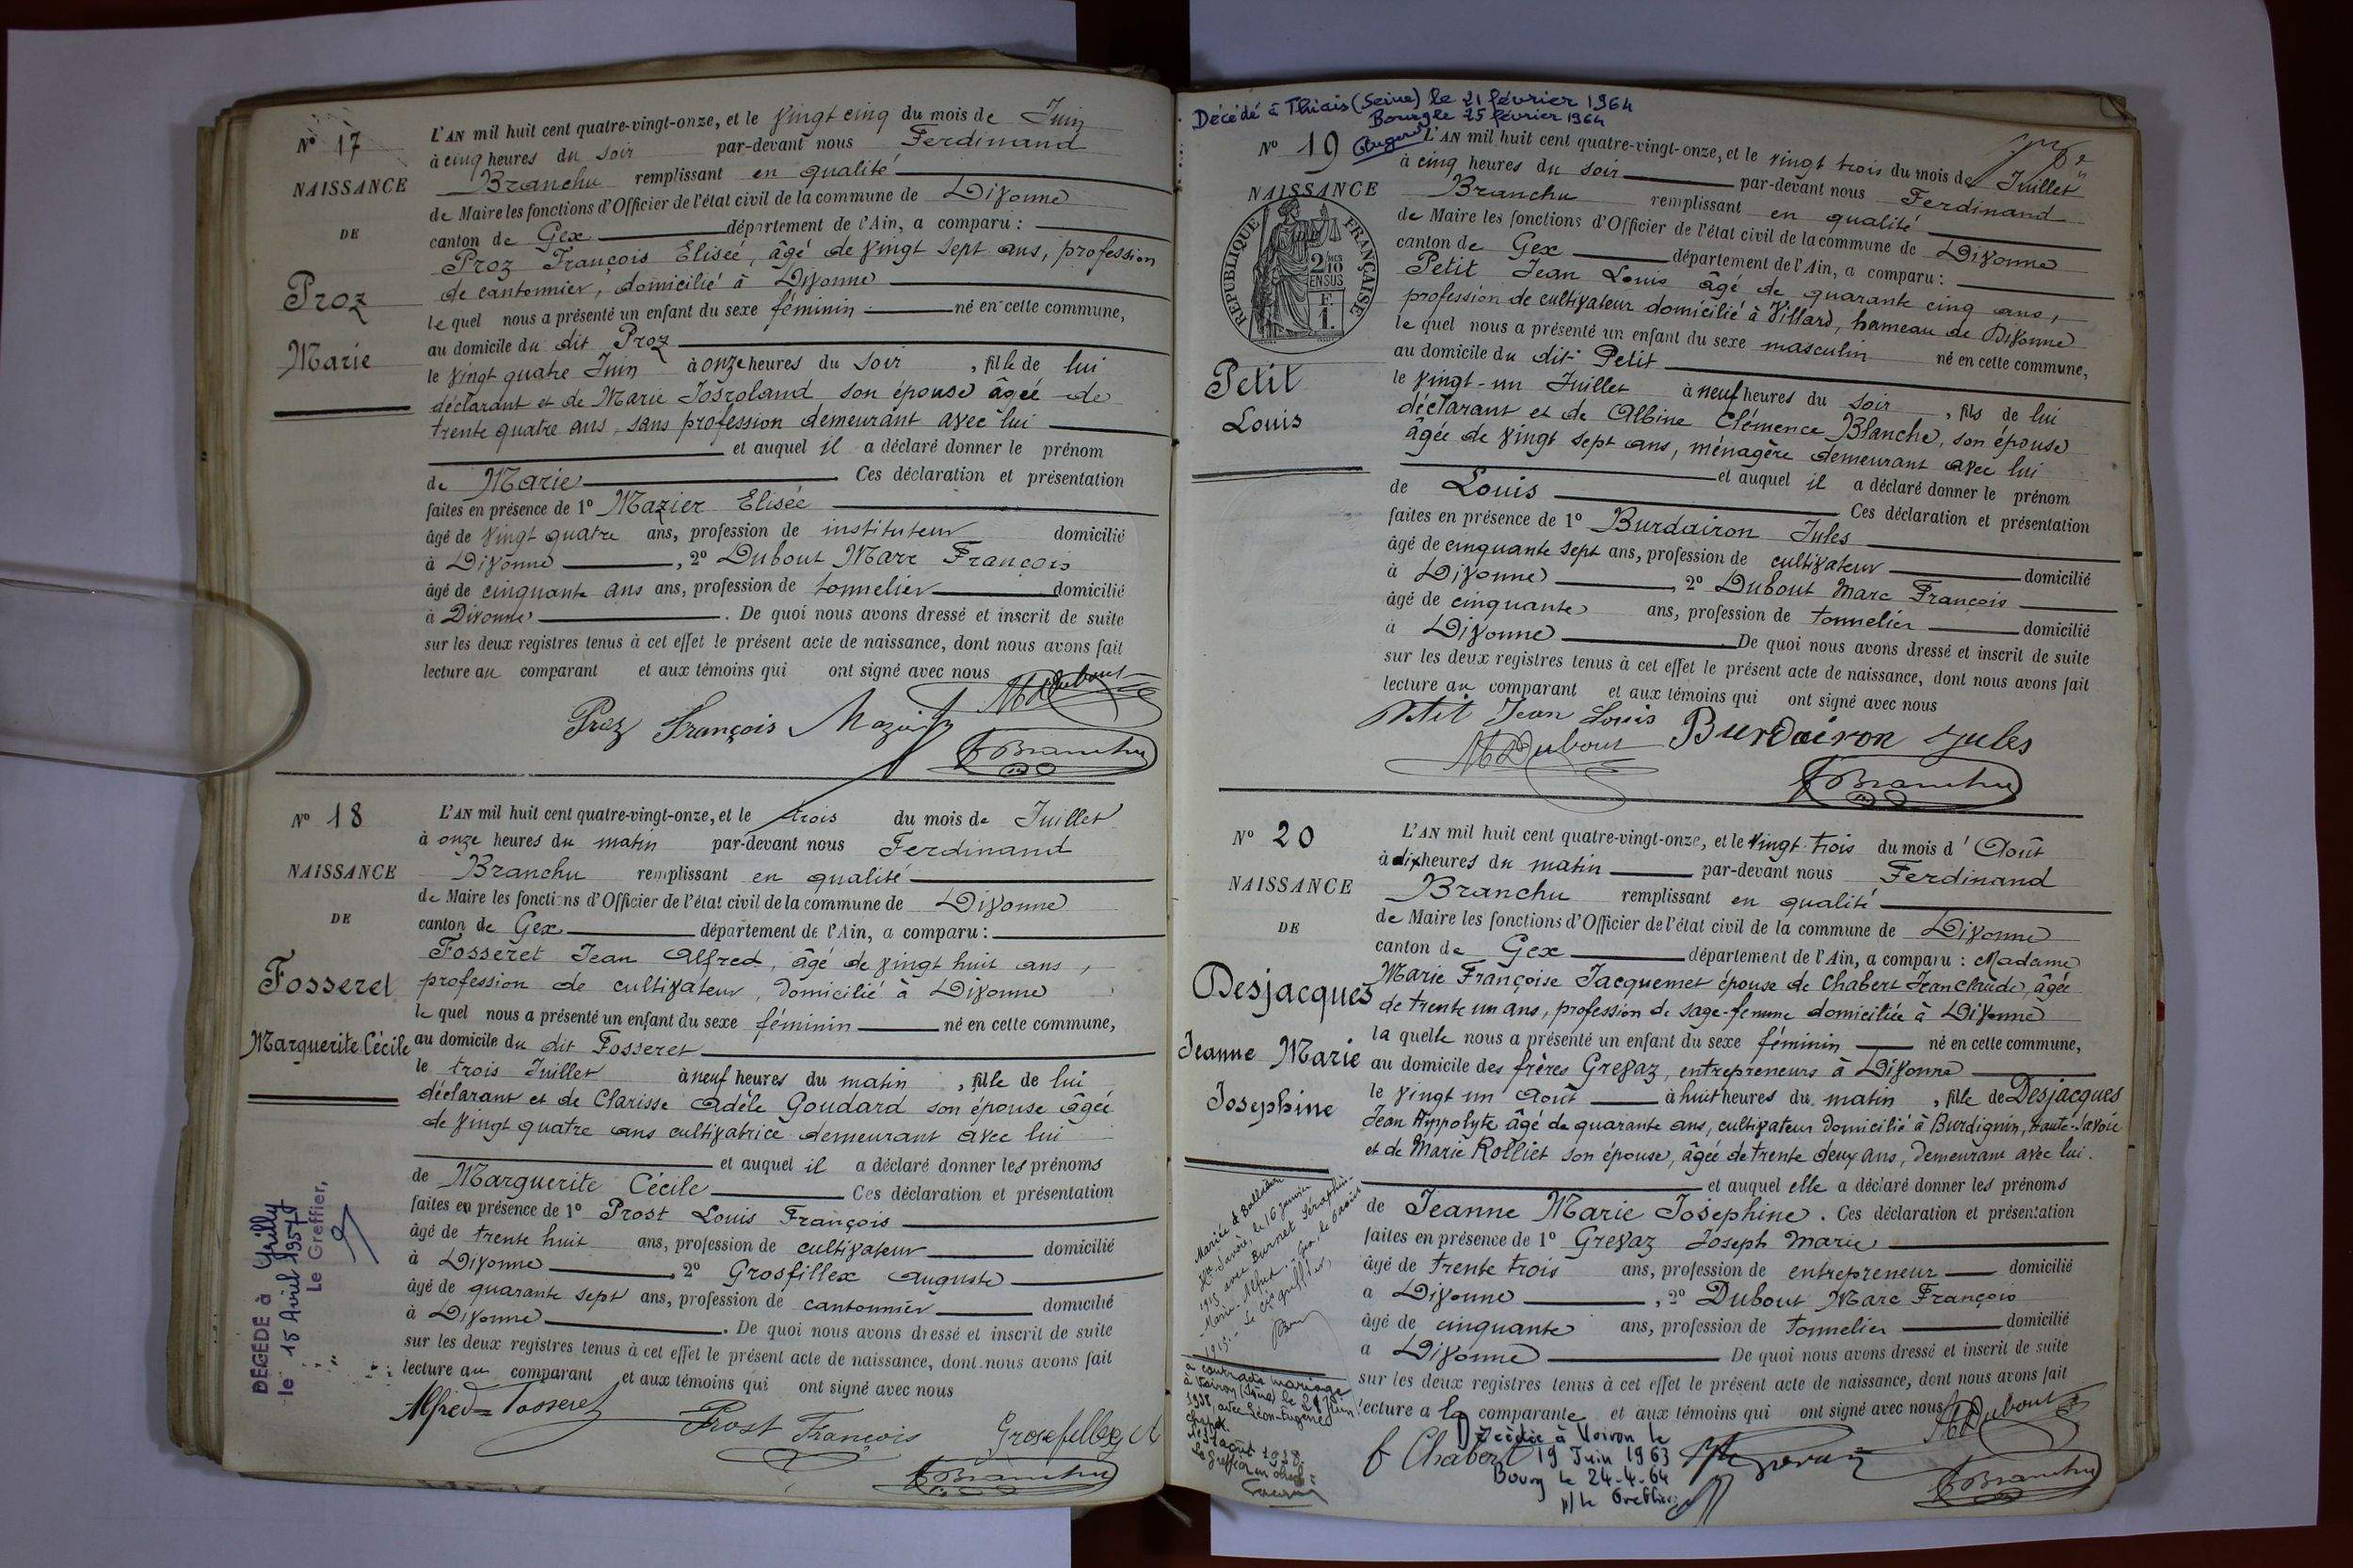 N° 17
NAISSANCE
DE
Proz
Marie
L'AN mil huit cent quatre-vingt-onze, et le vingt cinq du mois de Juin
à cinq heures du soir par-devant nous Ferdinand
Branchu remplissant en qualité
de Maire les fonctions d'Officier de l'état civil de la commune de Divonne
canton de Gex département de l'Ain, a comparu :
Proz François Elisée, âgé de vingt sept ans, profession
de cantonnier, domicilié à Divonne
le quel nous a présenté un enfant du sexe féminin né en cette commune,
au domicile du dit Proz
le vingt quatre Juin à onze heures du soir , fille de lui
déclarant et de Marie Josroland son épouse âgée de
trente quatre ans, sans profession demeurant avec lui
et auquel il a déclaré donner le prénom
de Marie Ces déclaration et présentation
faites en présence de 1° Mazier Elisée
âgé de vingt quatre ans, profession de instituteur domicilié
à Divonne , 2° Dubout Marc François
âgé de cinquante ans ans, profession de tonnelier domicilié
à Divonne . De quoi nous avons dressé et inscrit de suite
sur les deux registres tenus à cet effet le présent acte de naissance, dont nous avons fait
lecture au comparant et aux témoins qui ont signé avec nous
MDubout
Proz François Mazier
FBranchu
N° 18
NAISSANCE
DE
Fosseret
Marguerite Cécile
L'AN mil huit cent quatre-vingt-onze, et le trois du mois de Juillet
à onze heures du matin par-devant nous Ferdinand
Branchu remplissant en qualité
de Maire les fonctions d'Officier de l'état civil de la commune de Divonne
canton de Gex département de l'Ain, a comparu :
Fosseret Jean Alfred, âgé de vingt huit ans,
profession de cultivateur, domicilié à Divonne
le quel nous a présenté un enfant du sexe féminin né en cette commune,
au domicile du dit Fosseret
le trois Juillet à neuf heures du matin , fille de lui
déclarant et de Clarisse Adèle Goudard son épouse âgée
de vingt quatre ans cultivatrice demeurant avec lui
et auquel il a déclaré donner les prénoms
de Marguerite Cécile Ces déclaration et présentation
faites en présence de 1° Prost Louis François
âgé de trente huit ans, profession de cultivateur domicilié
à Divonne , 2° Grosfillex Auguste
âgé de quarante sept ans, profession de cantonnier domicilié
à Divonne . De quoi nous avons dressé et inscrit de suite
sur les deux registres tenus à cet effet le présent acte de naissance, dont nous avons fait
lecture au comparant et aux témoins qui ont signé avec nous
Alfred Fosseret
Prost François
FBranchu
DECEDE à Grilly
le 15 Avril 1957
Le Greffier,
Décédé à Thiais (Seine) le 21 février 1964
Bourg le 25 février 1964
N° 19
NAISSANCE
RÉPUBLIQUE FRANÇAISE
2/10 EN SUS
F.
1.
Petit
Louis
L'AN mil huit cent quatre-vingt-onze, et le vingt trois du mois de Juillet
à cinq heures du soir par-devant nous Ferdinand
Branchu remplissant en qualité
de Maire les fonctions d'Officier de l'état civil de la commune de Divonne
canton de Gex département de l'Ain, a comparu :
Petit Jean Louis âgé de quarante cinq ans,
profession de cultivateur domicilié à Villard, hameau de Divonne
le quel nous a présenté un enfant du sexe masculin né en cette commune,
au domicile du dit Petit
le vingt-un Juillet à neuf heures du soir , fils de lui
déclarant et de Albine Clémence Blanche, son épouse
âgée de vingt sept ans, ménagère demeurant avec lui
et auquel il a déclaré donner le prénom
de Louis Ces déclaration et présentation
faites en présence de 1° Burdairon Jules
âgé de cinquante sept ans, profession de cultivateur domicilié
à Divonne , 2° Dubout Marc François
âgé de cinquante ans, profession de tonnelier domicilié
à Divonne De quoi nous avons dressé et inscrit de suite
sur les deux registres tenus à cet effet le présent acte de naissance, dont nous avons fait
lecture au comparant et aux témoins qui ont signé avec nous
Petit Jean Louis Burdairon Jules
MDubout
FBranchu
N° 20
NAISSANCE
DE
Desjacques
Jeanne Marie
Josephine
L'AN mil huit cent quatre-vingt-onze, et le vingt-trois du mois d'Août
à dix heures du matin par-devant nous Ferdinand
Branchu remplissant en qualité
de Maire les fonctions d'Officier de l'état civil de la commune de Divonne
canton de Gex département de l'Ain, a comparu : Madame
Marie Françoise Jacquemet épouse de Chabert Jean Claude, âgée
de trente un ans, profession de sage-femme domiciliée à Divonne
la quelle nous a présenté un enfant du sexe féminin né en cette commune,
au domicile des frères Grevaz, entrepreneurs à Divonne
le vingt un Août à huit heures du matin , fille de Desjacques
Jean Hyppolyte âgé de quarante ans, cultivateur domicilié à Burdignin, Haute-Savoie
et de Marie Rolliet son épouse, âgée de trente deux ans, demeurant avec lui.
et auquel elle a déclaré donner les prénoms
de Jeanne Marie Josephine. Ces déclaration et présentation
faites en présence de 1° Grevaz Joseph Marie
âgé de trente trois ans, profession de entrepreneur domicilié
à Divonne , 2° Dubout Marc François
âgé de cinquante ans, profession de tonnelier domicilié
à Divonne De quoi nous avons dressé et inscrit de suite
sur les deux registres tenus à cet effet le présent acte de naissance, dont nous avons fait
lecture a la comparante et aux témoins qui ont signé avec nous
MDubout
f Chabert
FBranchu
Décédée à Voiron le
19 Juin 1963
Bourg le 24-4-64
p/ le Greffier
Mariée à
le 16 janvier
1915 avec Burnet Séraphin-
Marie-Alfred
1915. Le
a contracté mariage
à Voiron (Isère) le
avec Léon-Eugène
août 1938
Le Greffier en chef